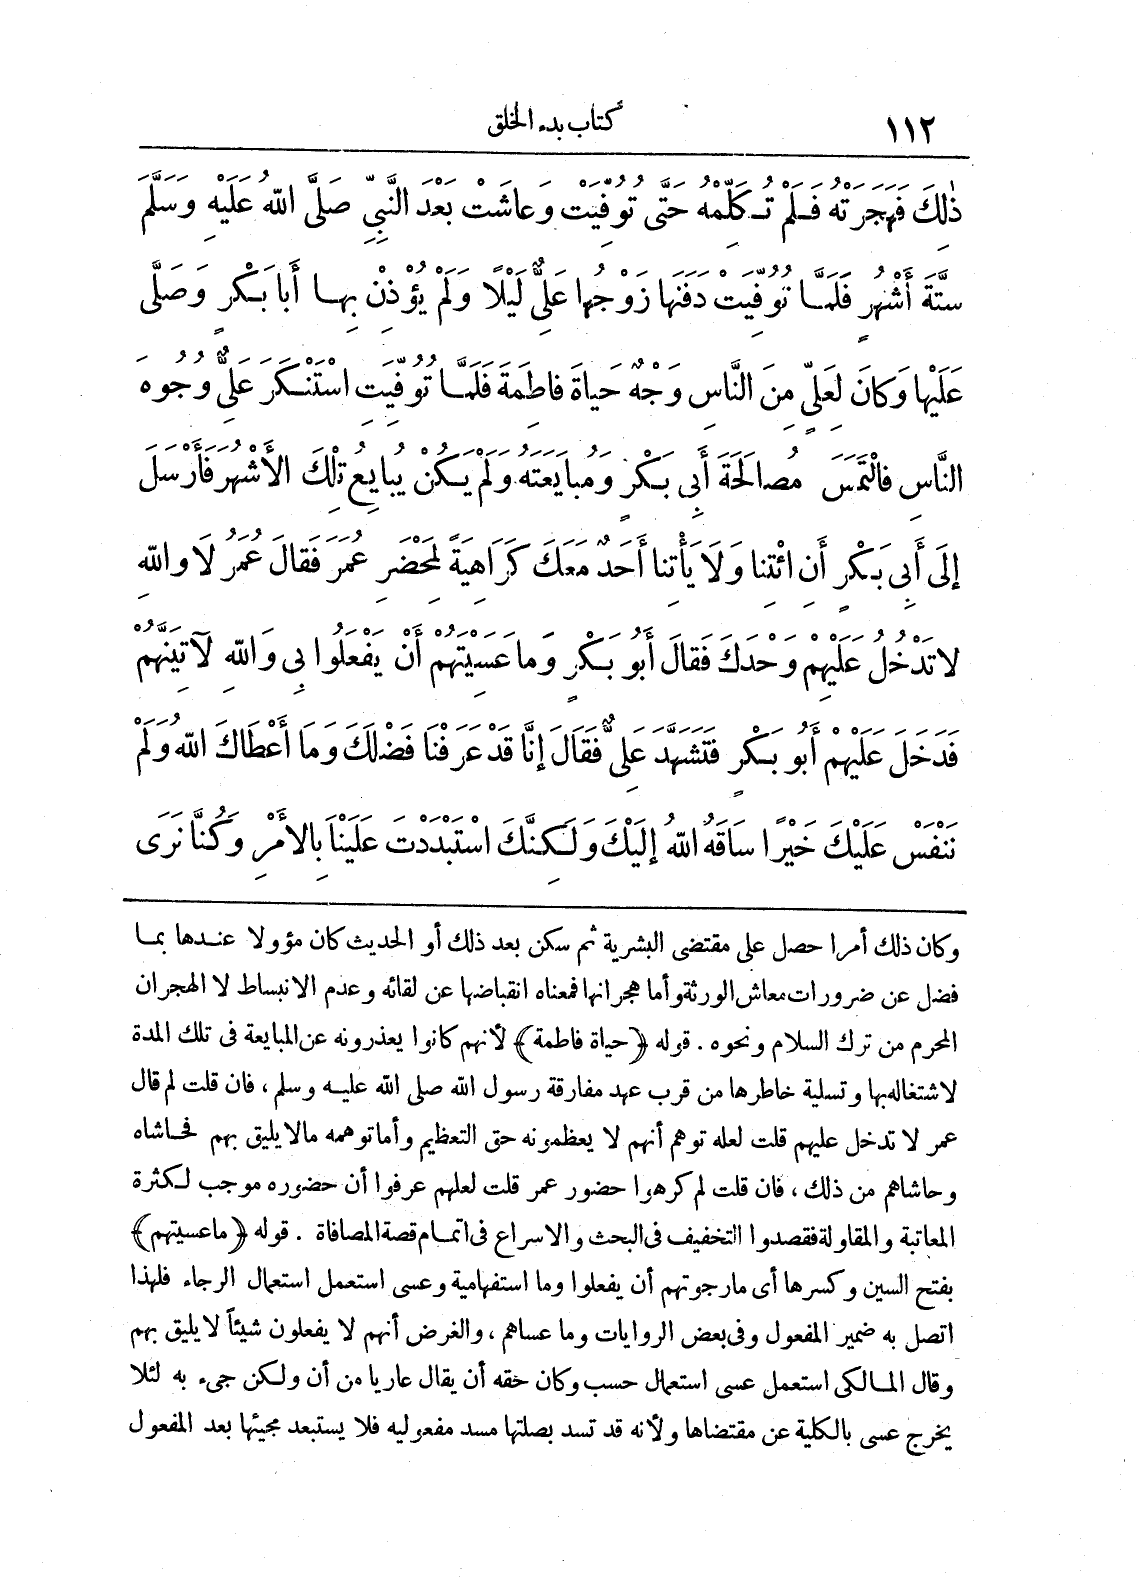 ١١٢
كتاب بدء الخلق
ذٰلِكَ فَهَجَرَتْهُ فَلَمْ تُكَلِّمْهُ حَتَّى تُوُفِّيَتْ وَعَاشَتْ بَعْدَ النَّبِيِّ صَلَّى اللهُ عَلَيْهِ وَسَلَّمَ
سِتَّةَ أَشْهُرٍ فَلَمَّا تُوُفِّيَتْ دَفَنَهَا زَوْجُهَا عَلِيٌّ لَيْلًا وَلَمْ يُؤْذِنْ بِهَا أَبَا بَكْرٍ وَصَلَّى
عَلَيْهَا وَكَانَ لِعَلِيٍّ مِنَ النَّاسِ وَجْهٌ حَيَاةَ فَاطِمَةَ فَلَمَّا تُوُفِّيَتِ اسْتَنْكَرَ عَلِيٌّ وُجُوهَ
النَّاسِ فَالْتَمَسَ مُصَالَحَةَ أَبِي بَكْرٍ وَمُبَايَعَتَهُ وَلَمْ يَكُنْ يُبَايِعُ تِلْكَ الأَشْهُرَ فَأَرْسَلَ
إِلَى أَبِي بَكْرٍ أَنِ ائْتِنَا وَلَا يَأْتِنَا أَحَدٌ مَعَكَ كَرَاهِيَةً لِمَحْضَرِ عُمَرَ فَقَالَ عُمَرُ لَا وَاللهِ
لَا تَدْخُلُ عَلَيْهِمْ وَحْدَكَ فَقَالَ أَبُو بَكْرٍ وَمَا عَسَيْتَهُمْ أَنْ يَفْعَلُوا بِي وَاللهِ لَآتِيَنَّهُمْ
فَدَخَلَ عَلَيْهِمْ أَبُو بَكْرٍ فَتَشَهَّدَ عَلِيٌّ فَقَالَ إِنَّا قَدْ عَرَفْنَا فَضْلَكَ وَمَا أَعْطَاكَ اللهُ وَلَمْ
نَنْفَسْ عَلَيْكَ خَيْرًا سَاقَهُ اللهُ إِلَيْكَ وَلَكِنَّكَ اسْتَبْدَدْتَ عَلَيْنَا بِالأَمْرِ وَكُنَّا نَرَى
وكان ذلك أمرا حصل على مقتضى البشرية ثم سكن بعد ذلك أو الحديث كان مؤولا عندها بما
فضل عن ضرورات معاش الورثة وأما هجرانها فمعناه انقباضها عن لقائه وعدم الانبساط لا الهجران
المحرم من ترك السلام ونحوه . قوله ﴿حياة فاطمة﴾ لأنهم كانوا يعذرونه عن المبايعة فى تلك المدة
لاشتغاله بها وتسلية خاطرها من قرب عهد مفارقة رسول الله صلى الله عليه وسلم ، فان قلت لم قال
عمر لا تدخل عليهم قلت لعله توهم أنهم لا يعظمونه حق التعظيم وأما توهمه مالا يليق بهم فحاشاه
وحاشاهم من ذلك ، فان قلت لم كرهوا حضور عمر قلت لعلهم عرفوا أن حضوره موجب لكثرة
المعاتبة والمقاولة فقصدوا التخفيف فى البحث والاسراع فى اتمام قصة المصافاة . قوله ﴿ما عسيتهم﴾
بفتح السين وكسرها أى مارجوتهم أن يفعلوا وما استفهامية وعسى استعمل استعمال الرجاء فلهذا
اتصل به ضمير المفعول وفى بعض الروايات وما عساهم ، والغرض أنهم لا يفعلون شيئاً لا يليق بهم
وقال المالكى استعمل عسى استعمال حسب وكان حقه أن يقال عاريا من أن ولكن جىء به لئلا
يخرج عسى بالكلية عن مقتضاها ولأنه قد تسد بصلتها مسد مفعوليه فلا يستبعد مجيئها بعد المفعول